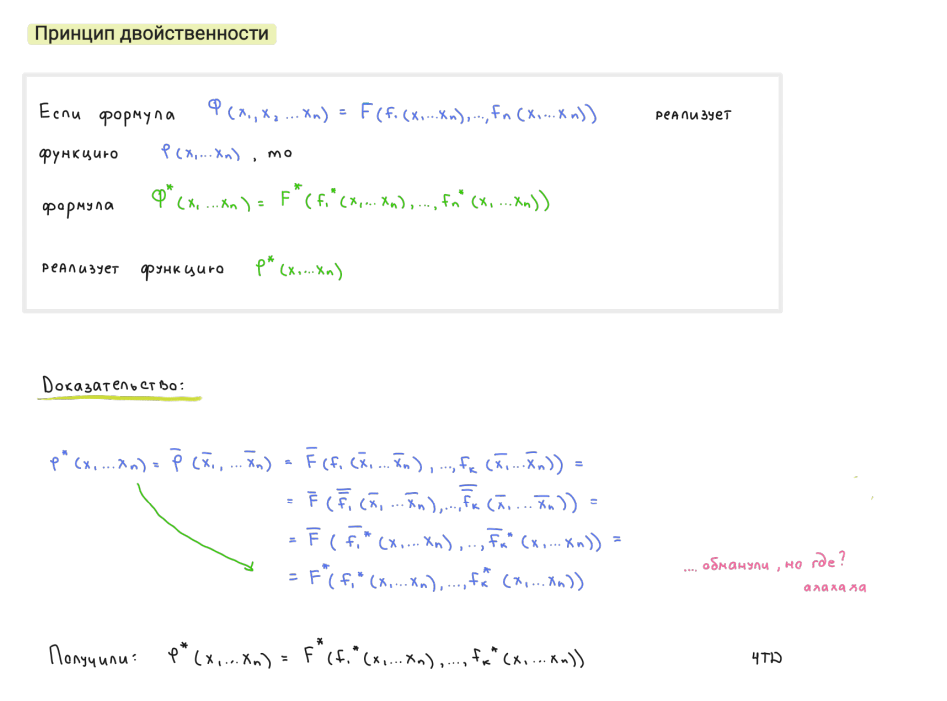 Принцип двойственности
Если формула Φ(x₁,x₂...xₙ) = F(f₁(x₁...xₙ),...,fₙ(x₁...xₙ)) реализует
функцию φ(x₁...xₙ), то
формула Φ*(x₁...xₙ) = F*(f₁*(x₁...xₙ),...,fₙ*(x₁...xₙ))
реализует функцию φ*(x₁...xₙ)
Доказательство:
φ*(x₁...xₙ) = φ̅(x̅₁,...x̅ₙ) = F̅(f₁(x̅₁...x̅ₙ),...,fₖ(x̅₁...x̅ₙ)) =
= F̅(f̿₁(x̅₁...x̅ₙ),...,f̿ₖ(x̅₁...x̅ₙ)) =
= F̅(f̅₁*(x₁...xₙ),...,f̅ₖ*(x₁...xₙ)) =
= F*(f₁*(x₁...xₙ),...,fₖ*(x₁...xₙ))
.... обманули, но где?
ахахаха
Получили: φ*(x₁...xₙ) = F*(f₁*(x₁...xₙ),...,fₖ*(x₁...xₙ)) ЧТД